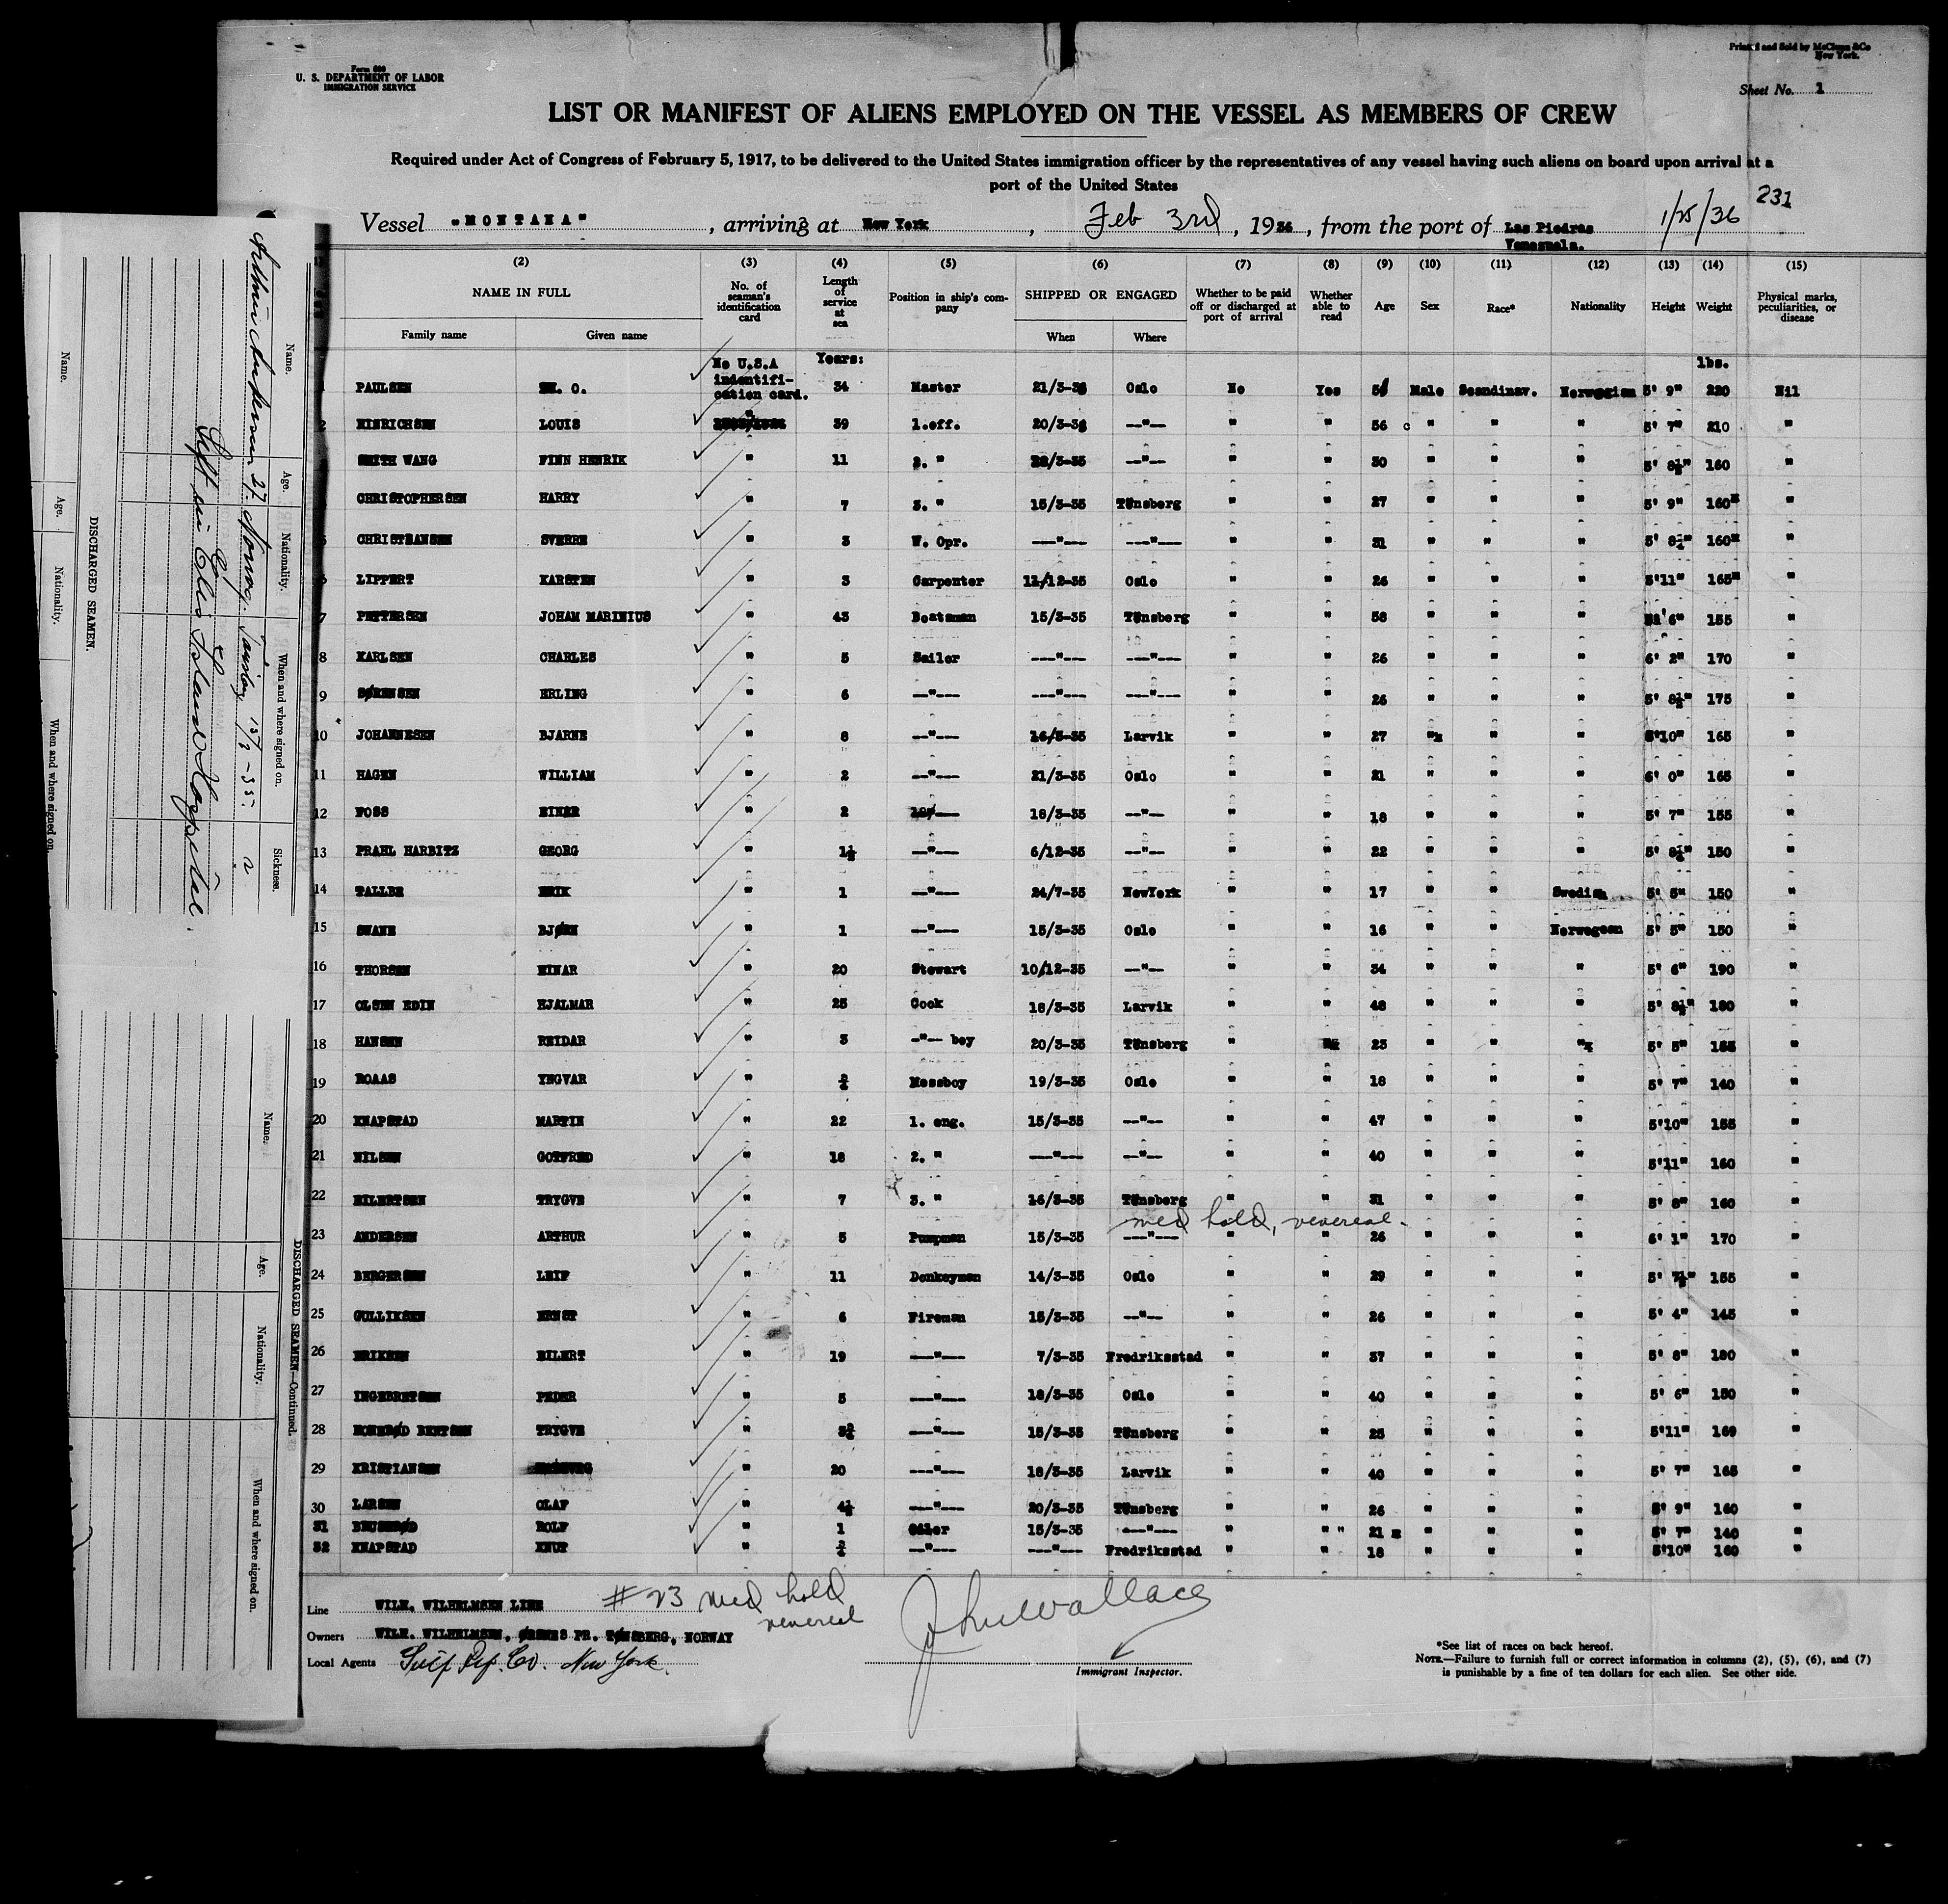 Form 680
U. S. DEPARTMENT OF LABOR
IMMIGRATION SERVICE
Printed and Sold by McClunn & Co
New York.
Sheet No. 1
LIST OR MANIFEST OF ALIENS EMPLOYED ON THE VESSEL AS MEMBERS OF CREW
Required under Act of Congress of February 5, 1917, to be delivered to the United States immigration officer by the representatives of any vessel having such aliens on board upon arrival at a
port of the United States
231
Vessel "MONTANA", arriving at New York, Feb 3rd, 1936, from the port of Las Piedras Venezuela. 1/25/36
(2) (3) (4) (5) (6) (7) (8) (9) (10) (11) (12) (13) (14) (15)
NAME IN FULL No. of seaman's identification card Length of service at sea Position in ship's company SHIPPED OR ENGAGED Whether to be paid off or discharged at port of arrival Whether able to read Age Sex Race* Nationality Height Weight Physical marks, peculiarities, or disease
Family name Given name When Where
No U.S.A indentifi-cation card. Years: lbs.
PAULSEN O. 34 Master 21/3-3 Oslo No Yes 5 Male Scandinav. Norwegian 5' 9" 220 Nil
2 HINRICHSEN LOUIS " 39 1.off. 20/3-3 --"-- " 56 " " " 5' 7" 210 "
SMITH WANG FINN HENRIK " 11 2. " 28/3-35 --"-- " " 30 " " " 5' 8½" 160 "
CHRISTOPHERSEN HARRY " 7 3. " 15/3-35 Tönsberg " " 27 " " " 5' 9" 160 "
5 CHRISTEANSEN SVERRE " 3 W. Opr. ---"--- ---"--- " " 31 " " " 5' 8¼" 160 "
6 LIPPERT KARSTEN " 3 Carpenter 11/12-35 Oslo " " 26 " " " 5'11" 165 "
7 PETTERSEN JOHAM MARINIUS " 43 Boatsman 15/3-35 Tönsberg " " 58 " " " 6" 155 "
8 KARLSEN CHARLES " 5 Sailor ---"--- ---"--- " " 26 " " " 6' 2" 170 "
9 SØRENSEN ERLING " 6 --"--- ---"--- ---"--- " " 26 " " " 5' 8½" 175 "
10 JOHANNESEN BJARNE " 8 --"--- 16/3-35 Larvik " " 27 " " " 5'10" 165 "
11 HAGEN WILLIAM " 2 --"--- 21/3-35 Oslo " " 21 " " " 6' 0" 165 "
12 FOSS EINER " 2 18/3-35 --"-- " " 18 " " " 5' 7" 155 "
13 PRAHL HARBITZ GEORG " 1½ --"--- 6/12-35 --"-- " " 22 " " " 5' 8¼" 150 "
14 TALLBE ERIK " 1 --"--- 24/7-35 NewYork " " 17 " " Swedish 5' 5" 150 "
15 SWANE BJØRN " 1 --"--- 15/3-35 Oslo " " 16 " " Norwegean 5' 5" 150 "
16 THORSEN EINAR " 20 Stewart 10/12-35 --"-- " " 34 " " " 5' 6" 190 "
17 OLSEN EDIN HJALMAR " 25 Cook 18/3-35 Larvik " " 48 " " " 5' 8½" 180 "
18 HANSEN REIDAR " 3 -"-- boy 20/3-35 Tönsberg " 23 " " " 5' 5" "
19 ROAAS YNGVAR " ¾ Messboy 19/3-35 Oslo " " 18 " " " 5' 7" 140 "
20 KNAPSTAD MARTIN " 22 1. eng. 15/3-35 --"-- " " 47 " " " 5'10" 155 "
21 NILSEN GOTFRED " 18 2. " ---"--- --"-- " " 40 " " " 5'11" 160 "
22 EILERTSEN TRYGVE " 7 3. " 16/3-35 Tönsberg " " 31 " " " 5' 8" 160 "
med hold, venereal.
23 ANDERSEN ARTHUR " 5 Pumpman 15/3-35 ---"--- " " 26 " " " 6' 1" 170 "
24 BERGERSEN LEIF " 11 Donkeyman 14/3-35 Oslo " " 29 " " " 5' 7½" 155 "
25 GULLIKSEN ERNST " 6 Fireman 15/3-35 --"-- " " 26 " " " 5' 4" 145 "
26 ERIKSEN EILERT " 19 ---"--- 7/3-35 Fredriksstad " " 37 " " " 5' 8" 180 "
27 INGEBRETSEN PEDER " 5 ---"--- 18/3-35 Oslo " " 40 " " " 5' 6" 150 "
28 BENTSEN TRYGVE " 3¾ ---"--- 15/3-35 Tönsberg " " 25 " " " 5'11" 169 "
29 KRISTIANSEN " 20 ---"--- 18/3-35 Larvik " " 40 " " " 5' 7" 165 "
30 LARSEN OLAF " 4½ ---"--- 20/3-35 Tönsberg " " 26 " " " 5' 9" 160 "
31 ROLF " 1 Oiler 15/3-35 ---"--- " " 21 " " " 5' 7" 140 "
32 KNAPSTAD KNUT " ¾ --"--- ---"--- Fredriksstad " " 18 " " " 5'10" 160 "
Line WILH. WILHELMSEN LINE # 23 med hold venereal
Owners WILH. WILHELMSEN, PR. TØNSBERG, NORWAY
Local Agents Gulf Ref. Co. New York.
John Wallace
Immigrant Inspector.
*See list of races on back hereof.
NOTE.—Failure to furnish full or correct information in columns (2), (5), (6), and (7)
is punishable by a fine of ten dollars for each alien. See other side.
DISCHARGED SEAMEN.
Name. Age. Nationality. When and where signed on.
Name. Age. Nationality. When and where signed on. Sickness.
Arthur Andersen 27. Norveg. Tønsberg 15/3-35.
Left in Ellis Island Hospital.
DISCHARGED SEAMEN—Continued.
Name. Age. Nationality. When and where signed on.